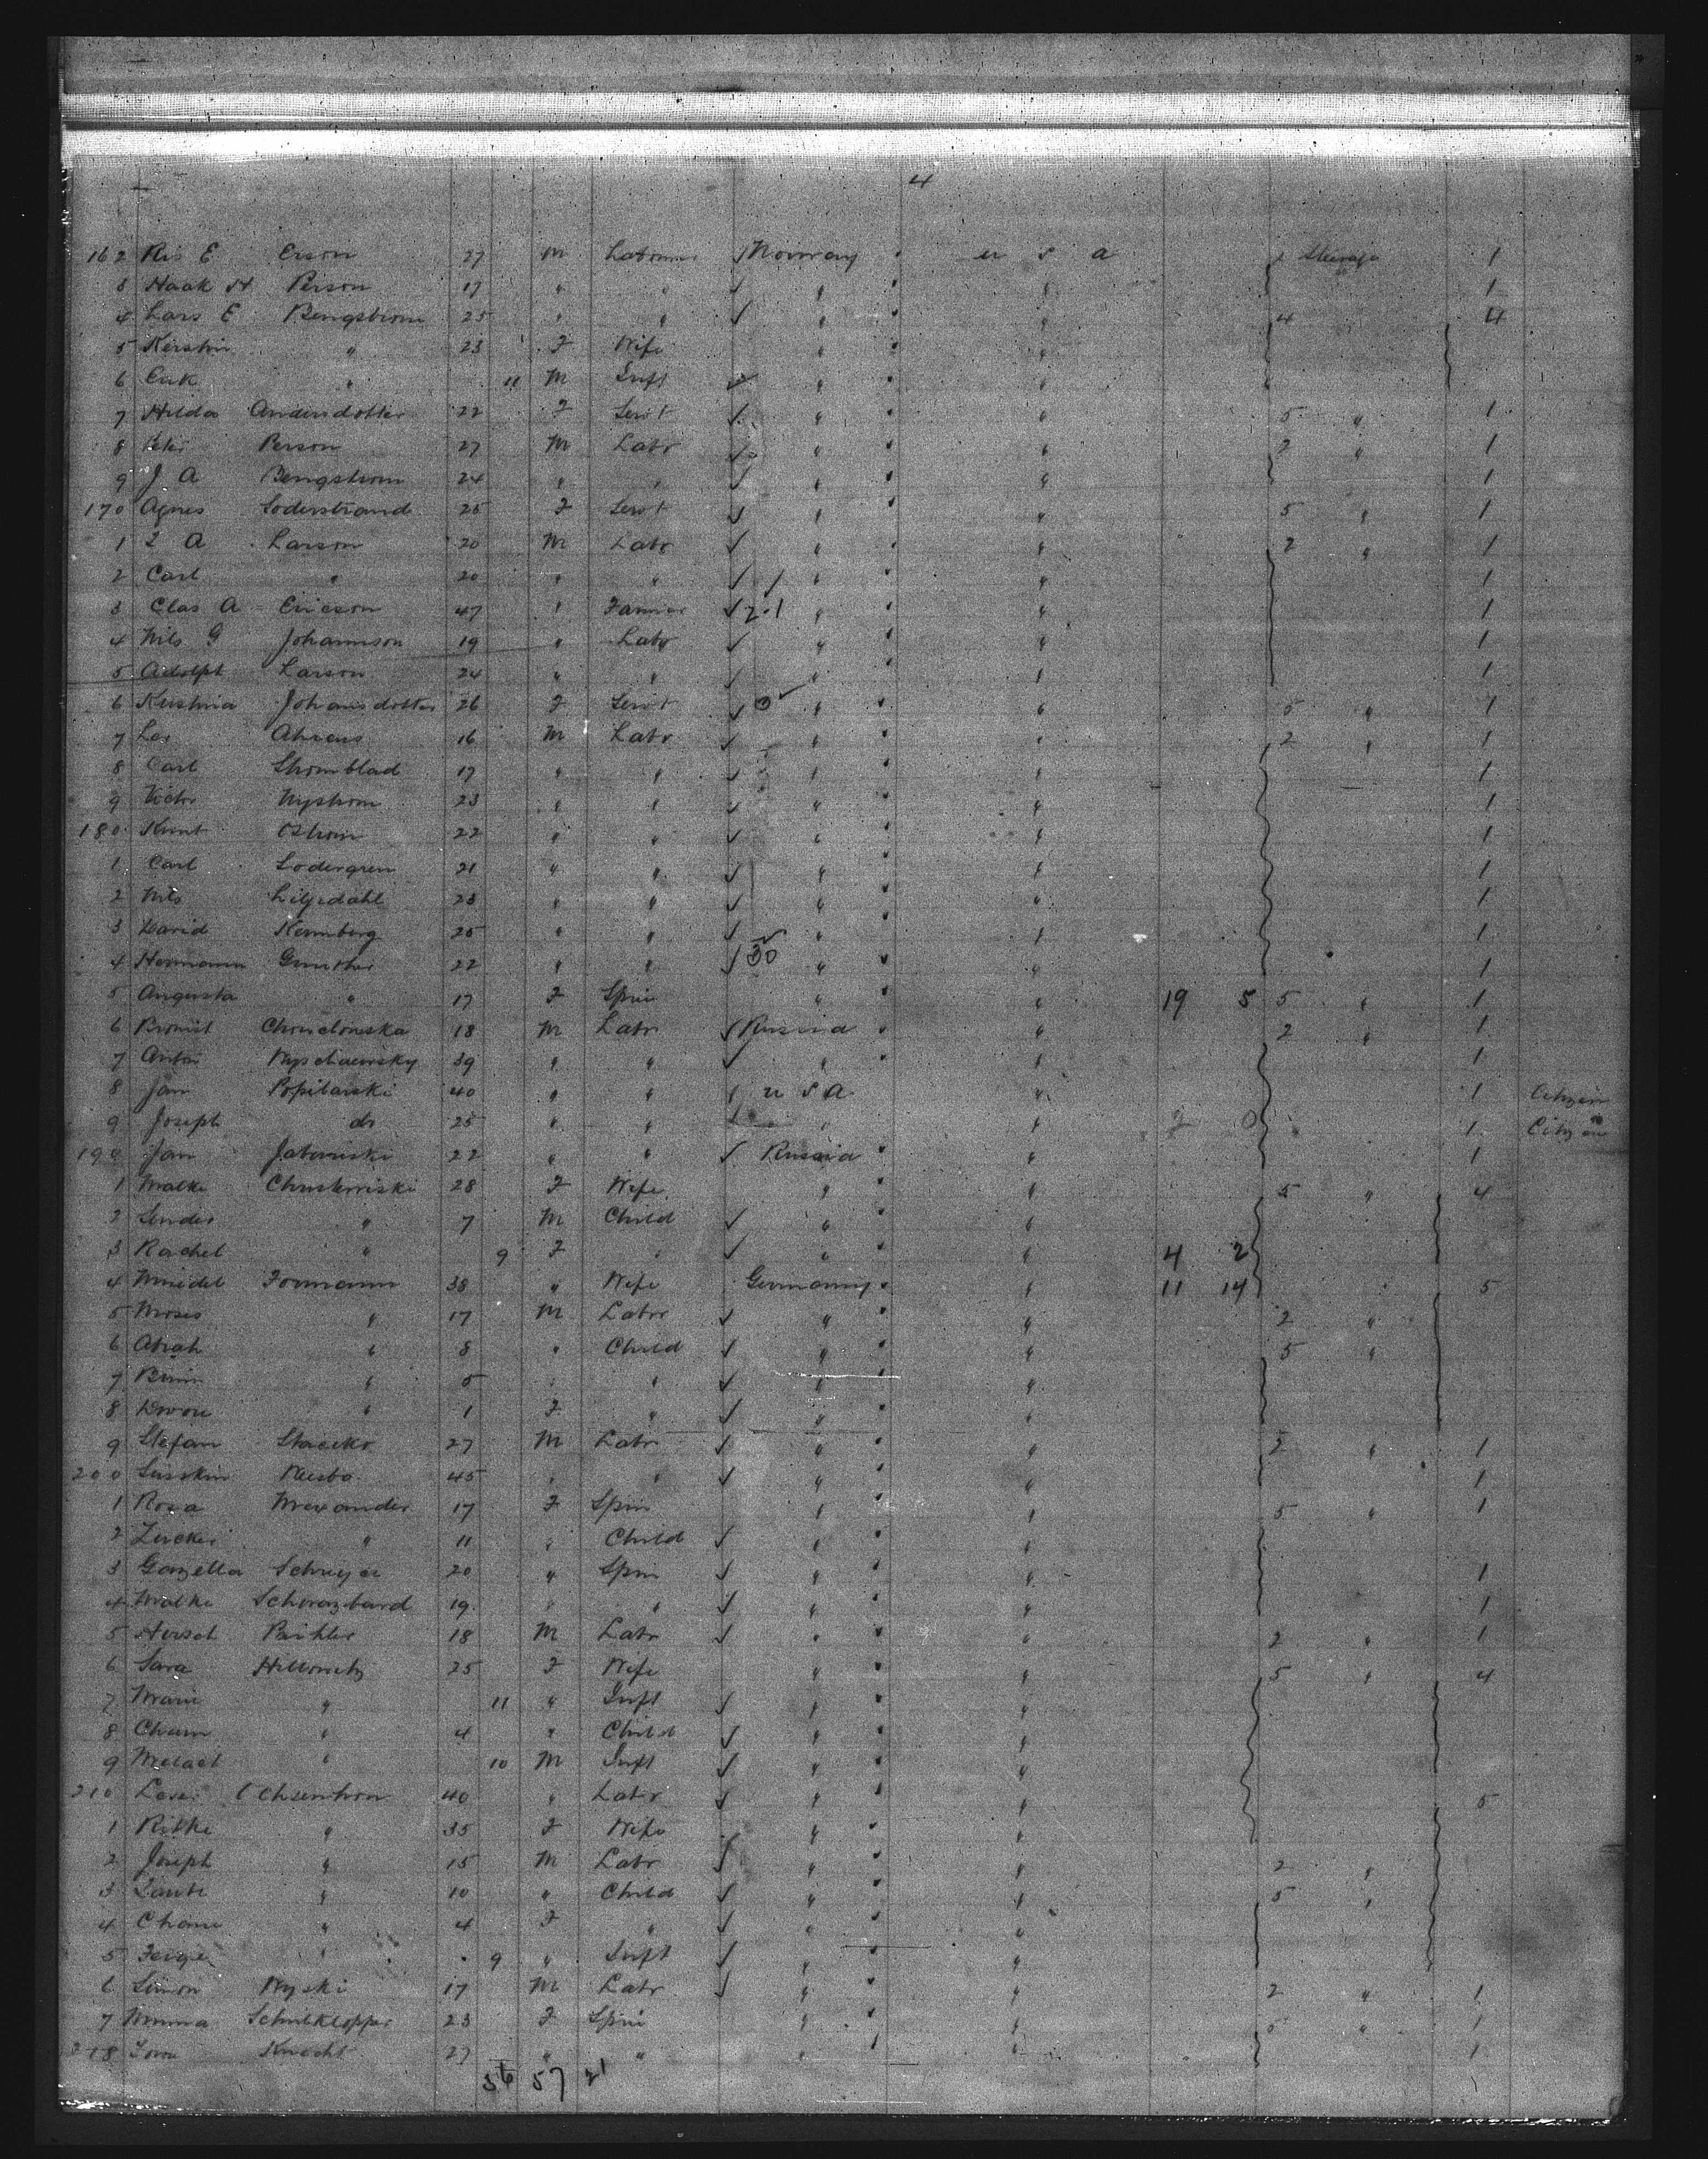 4
162 Ris E Erson 27 M Labourer Norway " U S A 2 Steerage 1
3 Haak H Person 17 " " " " 1
4 Lars E Bengstrom 25 " " " " 4 4
5 Kerstin " 23 F Wife " "
6 Erik " 11 M Inft " "
7 Hilda Andersdotter 22 F Servt " " 5 " 1
8 Peter Person 27 M Labr " " 2 " 1
9 J A Bengstrom 24 " " " " 1
170 Agnes Soderstrand 25 F Servt " " 5 " 1
1 A Larson 20 M Labr " " 2 " 1
2 Carl " 20 " " " " 1
3 Clas A Ericson 47 " Farmer 2.1 " " 1
4 Nils G Johannson 19 " Labr " " 1
5 Adolph Larson 24 " " " " 1
6 Kristina Johansdotter 26 F Servt " " 5 " 1
7 Ahrens 16 M Labr " " 2 " 1
8 Carl Stromblad 17 " " " " 1
9 Victor Nystrom 23 " " " " 1
180 Knut Ostrom 22 " " " " 1
1 Carl Sodergren 21 " " " " 1
2 Nils Liljedahl 23 " " " " 1
3 David Kernberg 25 " " " " 1
4 Hermann Gunther 22 " " 30 " " 1
5 Augusta " 17 F Spin " " 19 5 5 " 1
6 18 M Labr Russia " 2 " 1
7 Anton 39 " " " " 1
8 Jan Popilarski 40 " " U S A " 1 Citizen
9 Joseph do 25 " " " " 2 0 1 Citizen
190 Jan 22 " " Russia " 1
1 Malke 28 F Wife " " 5 " 4
2 Sender " 7 M Child " "
3 Rachel " 9 F " " " 4 2
4 Formann 38 " Wife Germany " 11 14 5
5 Moses " 17 M Labr " " 2 "
6 Abrah " 8 " Child " " 5 "
7 " 5 " " " "
8 " 1 F " " "
9 Stefan 27 M Labr " " 2 " 1
200 45 " " " " 1
1 Rosa Mexander 17 F Spin " " 5 " 1
2 " 11 " Child " "
3 20 " Spin " " 1
4 Malke Schwarzbard 19 " " " " 1
5 Hersch 18 M Labr " " 2 " 1
6 Sara 25 F Wife " " 5 " 4
7 Marie " 11 " Inft " "
8 " 4 " Child " "
9 " 10 M Inft " "
210 40 " Labr " " 5
1 " 35 F Wife " "
2 Joseph " 15 M Labr " " 2 "
3 " 10 " Child " " 5 "
4 " 4 F " " "
5 Feige " 9 " Inft " "
6 Simon 17 M Labr " " 2 " 1
7 Minna Schulklopper 23 F Spin " " 5 " 1
218 Knecht 27 " " " " 1
36 57 21